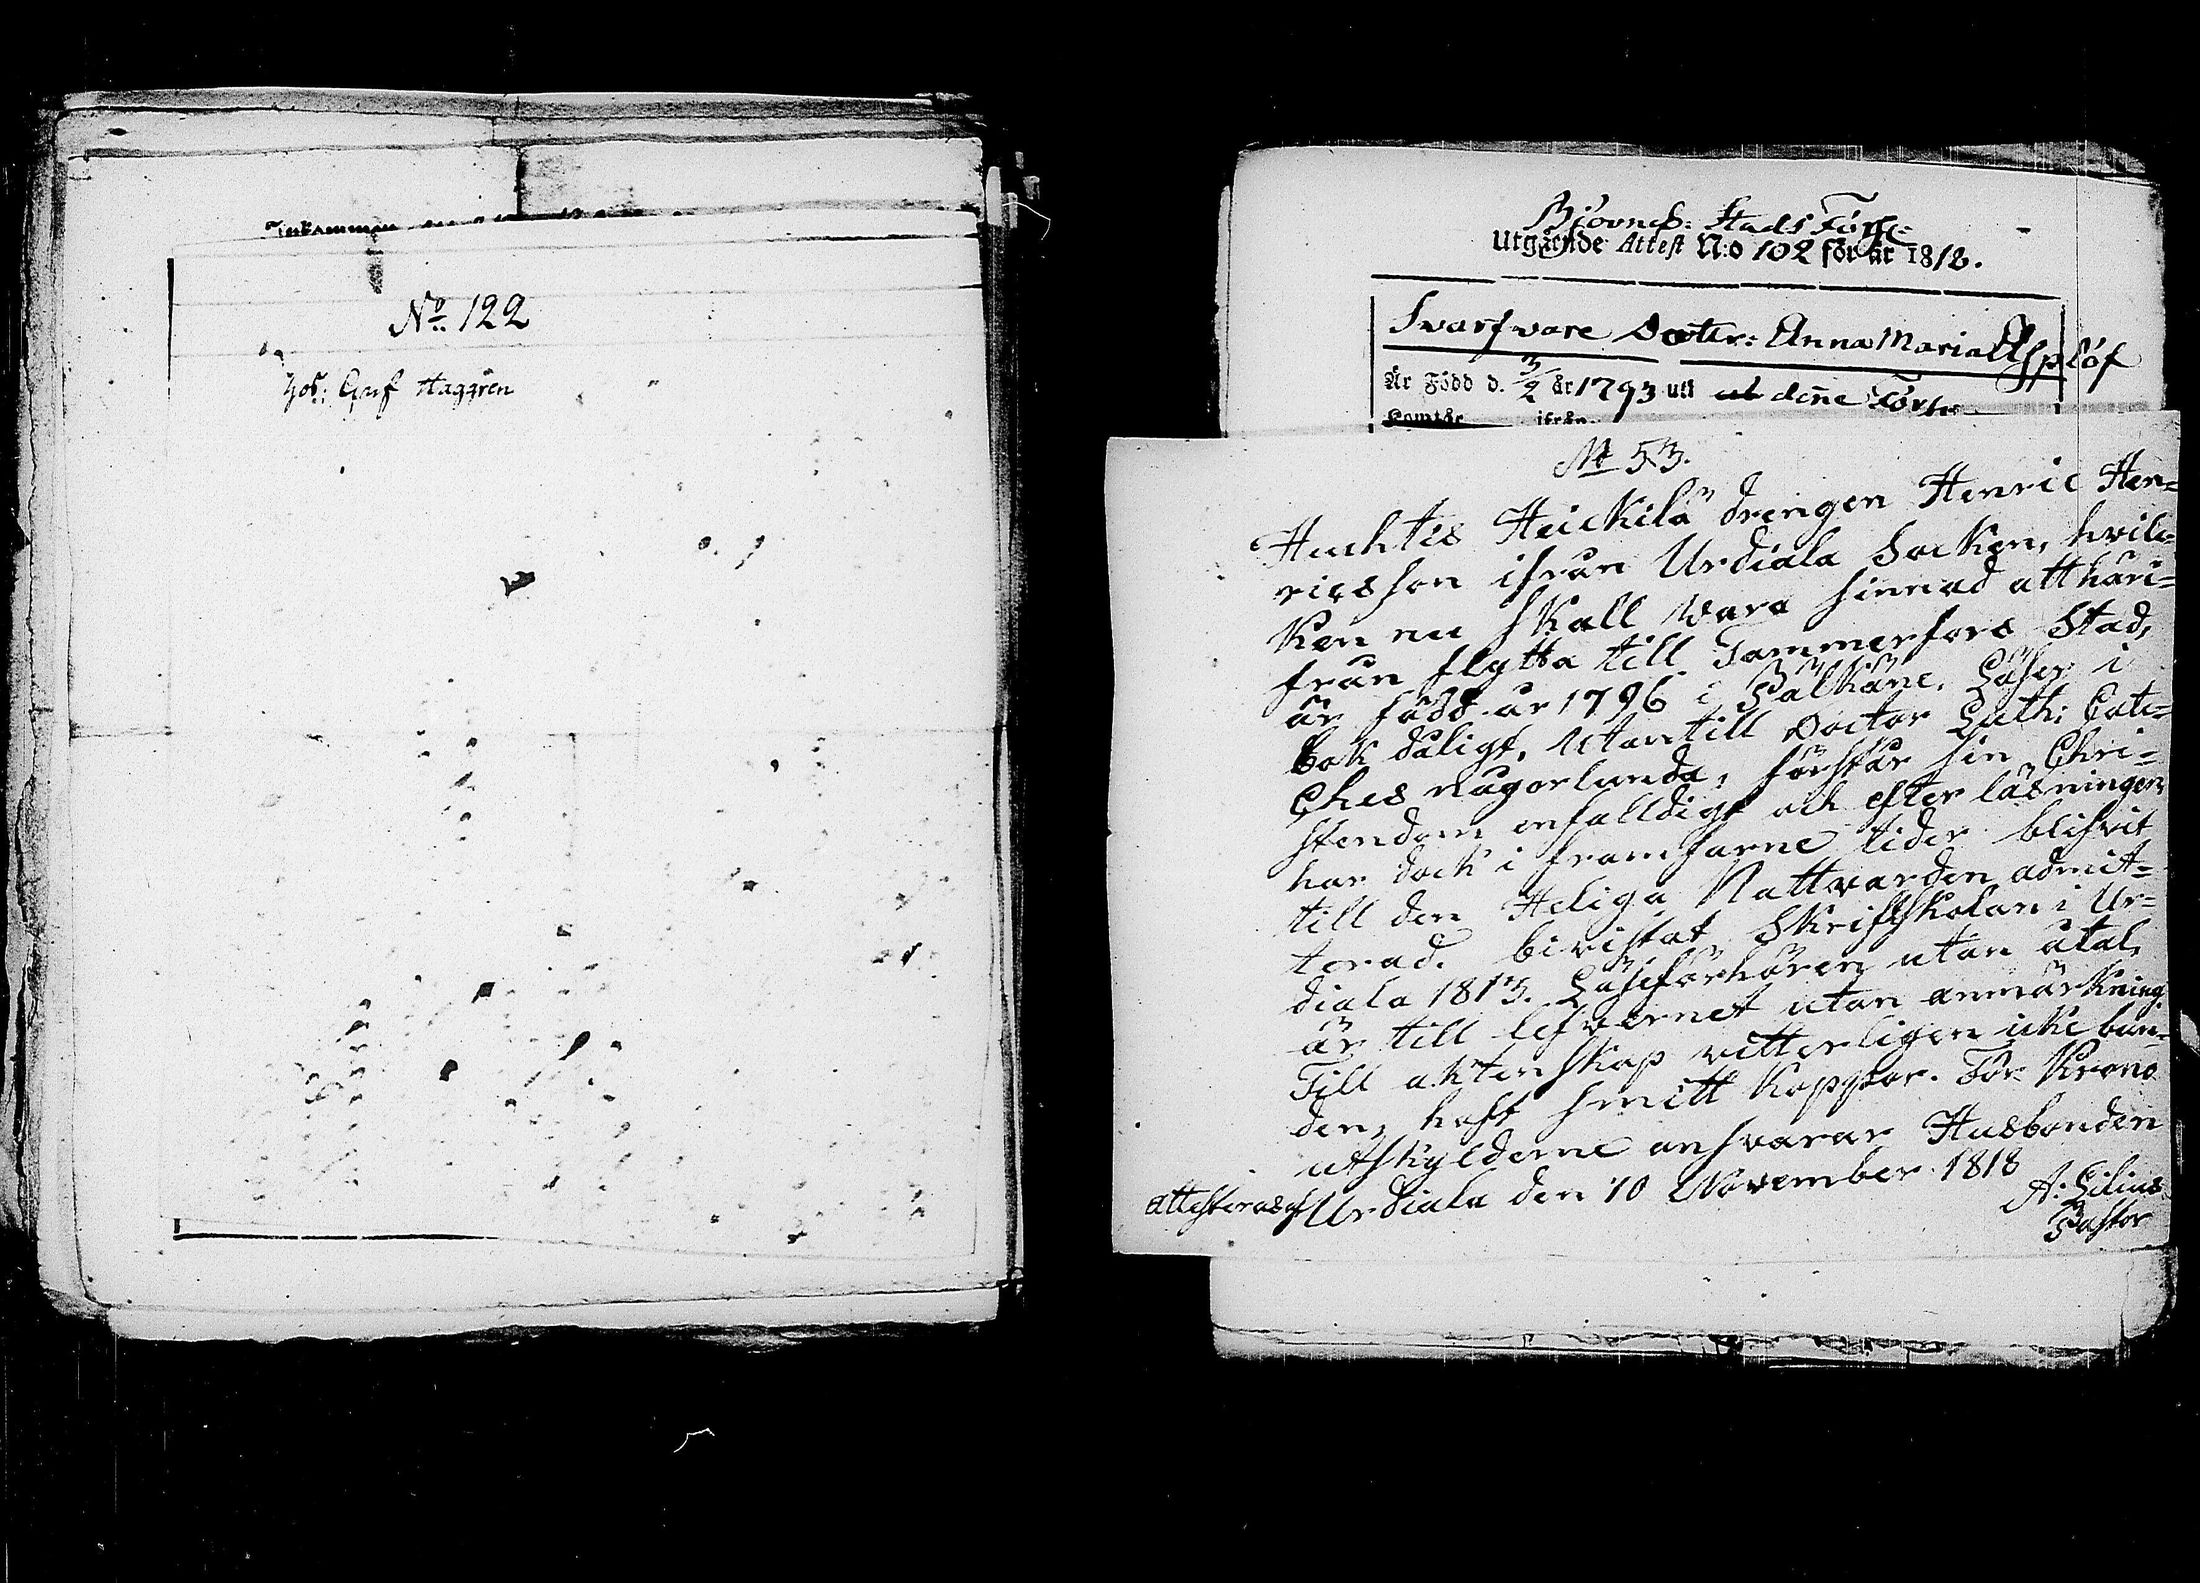 Inkommen
No 122
Joh: Gust Haggren
Björneb: Stads Förs:
Utgående Attest N:o 102 för år 1818.
Svarfvare Dotter: Anna Maria Asplöf
Är Född d. 3/2 år 1793 uti denne Förs
Komt år ifrån
No 53.
Huchtis Heickilä drengen Henric Hen=
ricsson ifrån Urdiala Socken, hvil=
ken nu skall vara sinnad att häri=
från flytta till Tammerfors Stad,
är född år 1796 i Pälkäne. Läser i
bok dåligt, utantill Doctor Luth: Cate=
ches någorlunda, förstår sin Chri=
stendom enfalldigt och efter läsningen,
har dock i framfarne tider blifvit
till den Heliga Nattvarden admit=
terad. bivistat Skriftskolan i Ur=
diala 1813. Läseförhören utan åtal,
är till lefvernet utan anmärkning
Till äktenskap vitterligen icke bun=
den, haft smitt koppor. För Krono
utskylderne ansvarar Husbonden
Attesteras af Urdiala den 10 November 1818
A: Lilius
Pastor